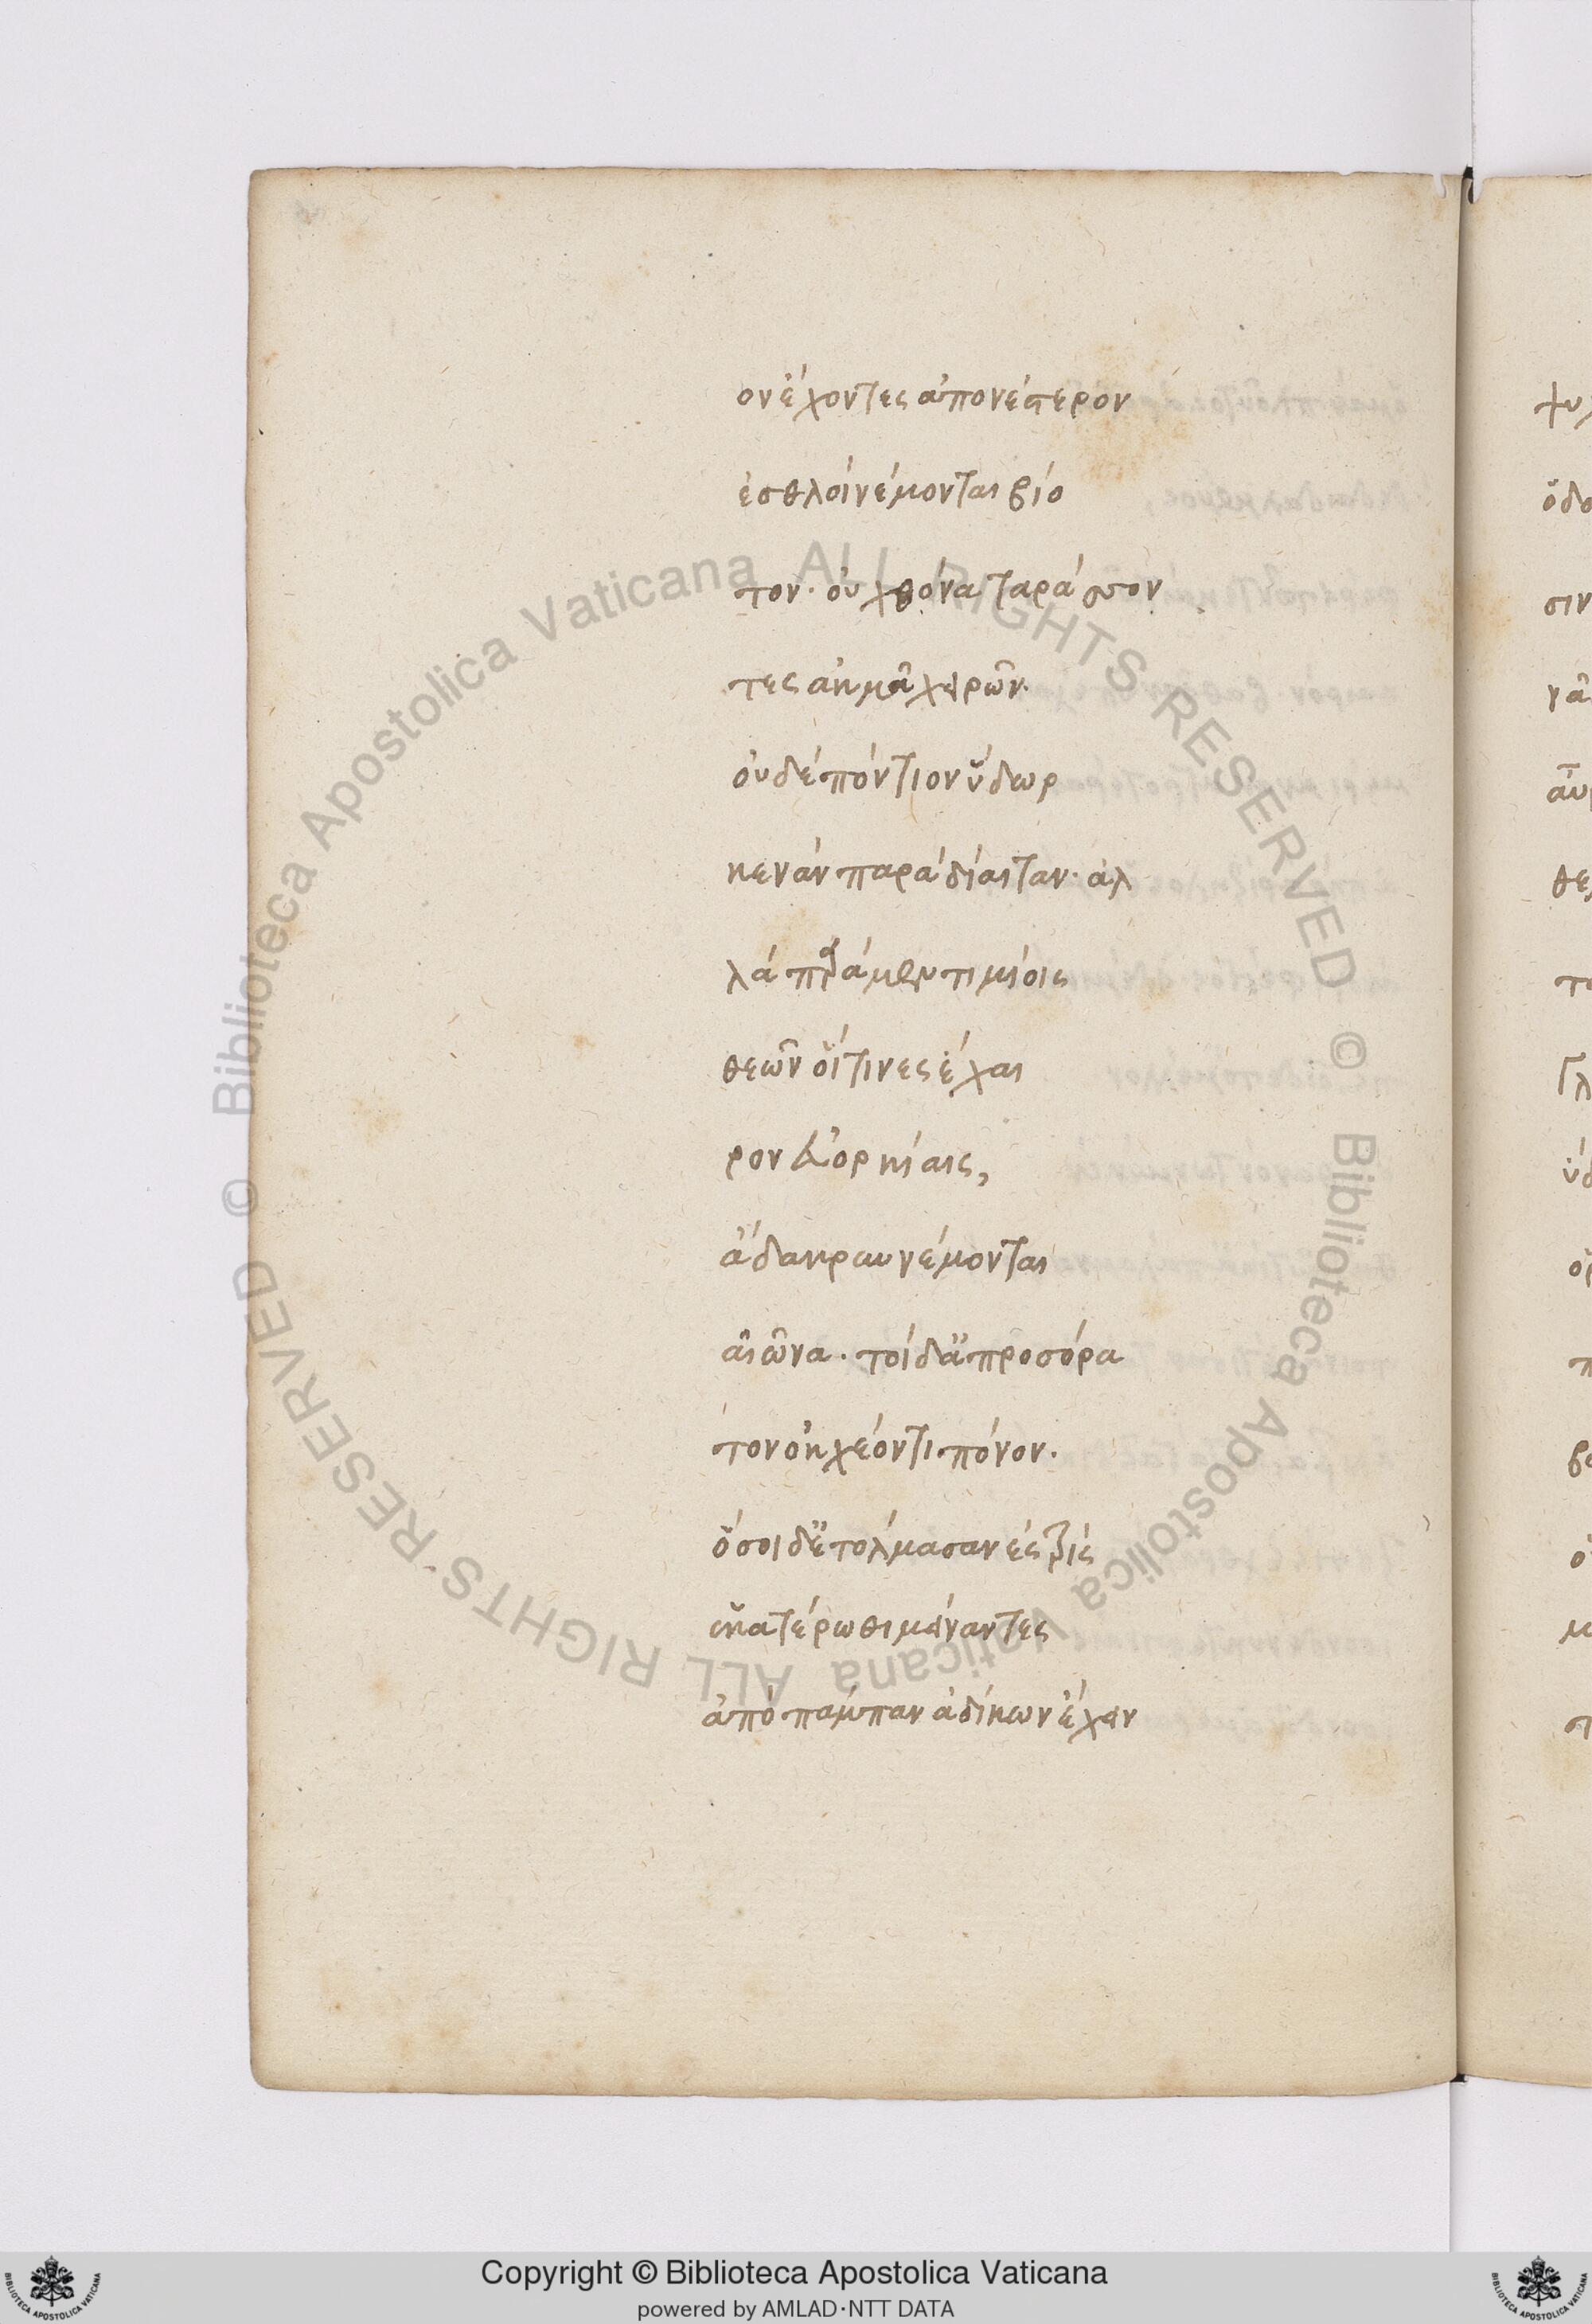 ον ἔχοντες ἀπονέστερον
ἐσθλοὶ νέμονται βίο
τον· οὐ χθόνα ταράσσον
τες ἀκμᾶ χερῶν·
οὐδὲ πόντιον ὕδωρ
κεινὰν παρὰ δίαιταν· ἀλ
λὰ παρὰ μὲν τιμίοις
θεῶν οἵτινες ἔχαι
ρον εὐορκίαις,
ἄδακρυν νέμονται
αἰῶνα· τοὶ δ' ἀπροσόρα
τον ὀκχέοντι πόνον·
ὅσοι δ' ἐτόλμασαν ἐς τρίς
ἑκατέρωθι μείναντες
ἀπὸ πάμπαν ἀδίκων ἔχειν
Copyright © Biblioteca Apostolica Vaticana
powered by AMLAD·NTT DATA
© Biblioteca Apostolica Vaticana ALL RIGHTS RESERVED
© Biblioteca Apostolica Vaticana ALL RIGHTS RESERVED
BIBLIOTECA APOSTOLICA VATICANA
BIBLIOTECA APOSTOLICA VATICANA